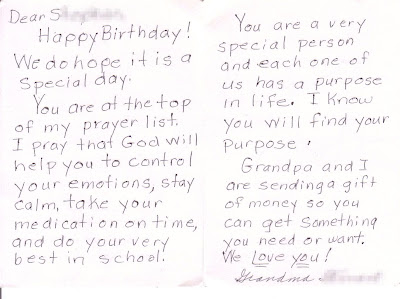 Dear S
Happy Birthday!
We do hope it is a
special day.
You are at the top
of my prayer list.
I pray that God will
help you to control
your emotions, stay
calm, take your
medication on time,
and do your very
best in school!
You are a very
special person
and each one of
us has a purpose
in life. I know
you will find your
purpose.
Grandpa and I
are sending a gift
of money so you
can get something
you need or want.
We Love you!
Grandma